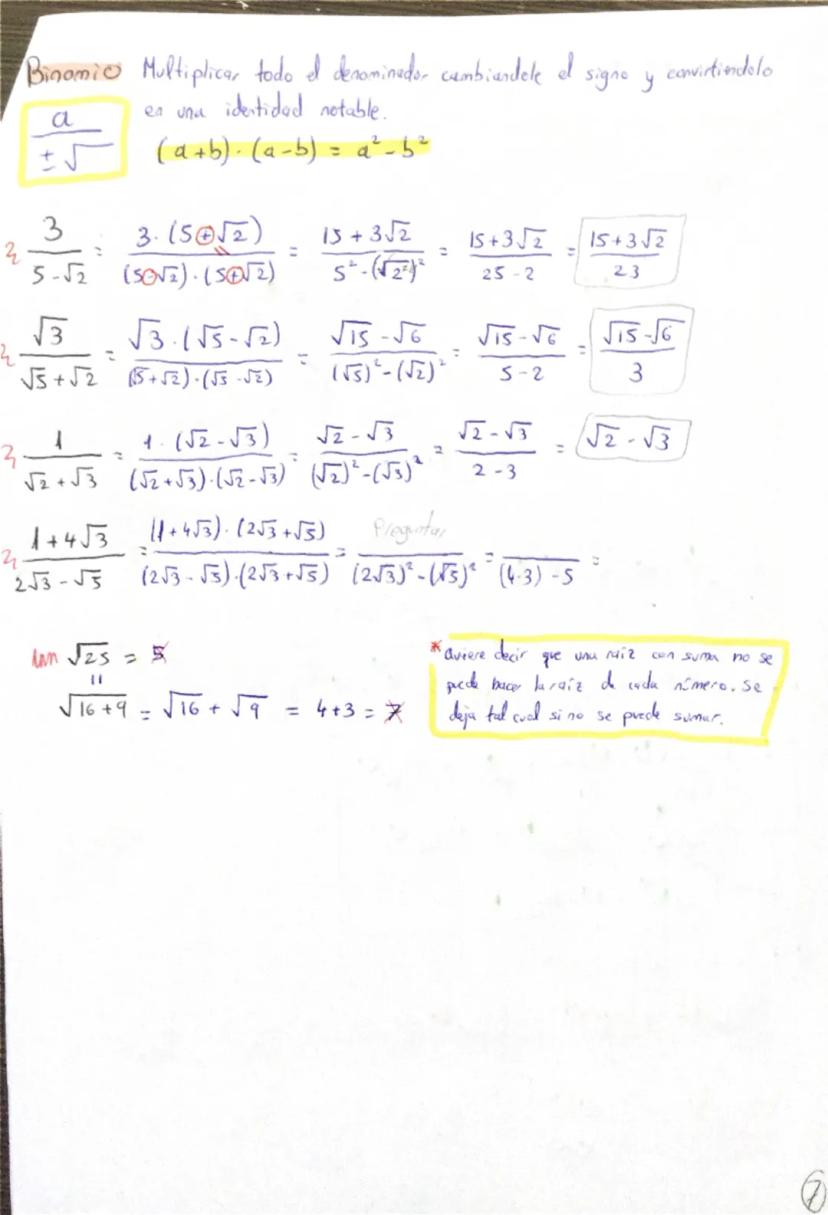 Binomio Multiplicar todo el denominador cambiandole el signo y convirtiendolo
en una identidad notable.
a / ±√
(a+b)·(a-b) = a²-b²
3/(5-√2) = 3·(5+√2)/((5-√2)·(5+√2)) = (15+3√2)/(5²-(√2²)²) = (15+3√2)/(25-2) = (15+3√2)/23
√3/(√5+√2) = √3·(√5-√2)/((√5+√2)·(√5-√2)) = (√15-√6)/((√5)²-(√2)²) = (√15-√6)/(5-2) = (√15-√6)/3
1/(√2+√3) = 1·(√2-√3)/((√2+√3)·(√2-√3)) = (√2-√3)/((√2)²-(√3)²) = (√2-√3)/(2-3) = √2-√3
Preguntar
(1+4√3)/(2√3-√5) = (1+4√3)·(2√3+√5)/((2√3-√5)·(2√3+√5)) = /((2√3)²-(√5)²) = /((4·3)-5) =
√25 = 5
=
√16+9 = √16 + √9 = 4+3 = 7
*Quiere decir que una raiz con suma no se
puede hacer la raiz de cada número. Se
deja tal cual si no se puede sumar.
7